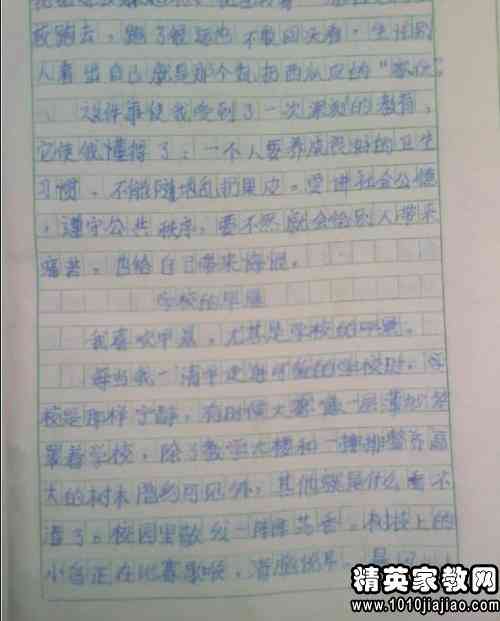 跑去，跑了很远也不敢回头看，生怕别
人看出自己就是那个乱扔西瓜皮的“家伙”。
这件事使我受到了一次深刻的教育，
它使我懂得了：一个人要养成良好的卫生
习惯，不能随地乱扔果皮。要讲社会公德
，遵守公共秩序，要不然就会给别人带来
痛苦，也给自己带来悔恨。
学校的早晨
我喜欢早晨，尤其是学校的早晨。
每当我一清早走进可爱的学校时，学
校是那样宁静，有时候大雾像一层薄纱笼
罩着学校，除了教学大楼和一排排整齐高
大的树木隐约可见外，其他就是什么看不
清了。校园里散发一阵阵芳香。树枝上的
小鸟正在比赛歌喉，清脆悦耳。
精英家教网
www.1010jiajiao.com